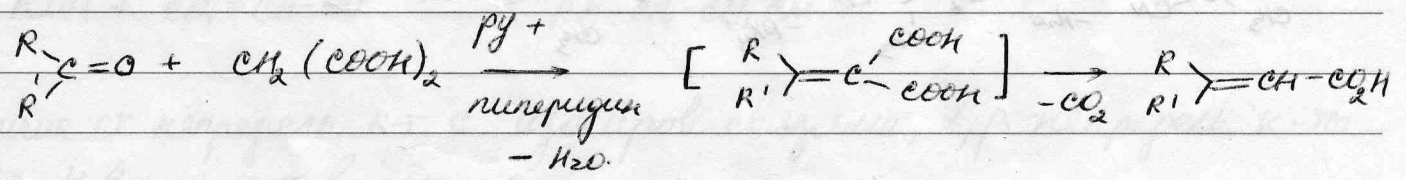 R R' C=O + CH₂(COOH)₂ py + пиперидин – H₂O [ R R' =C COOH COOH ] –CO₂ R R' =CH–CO₂H